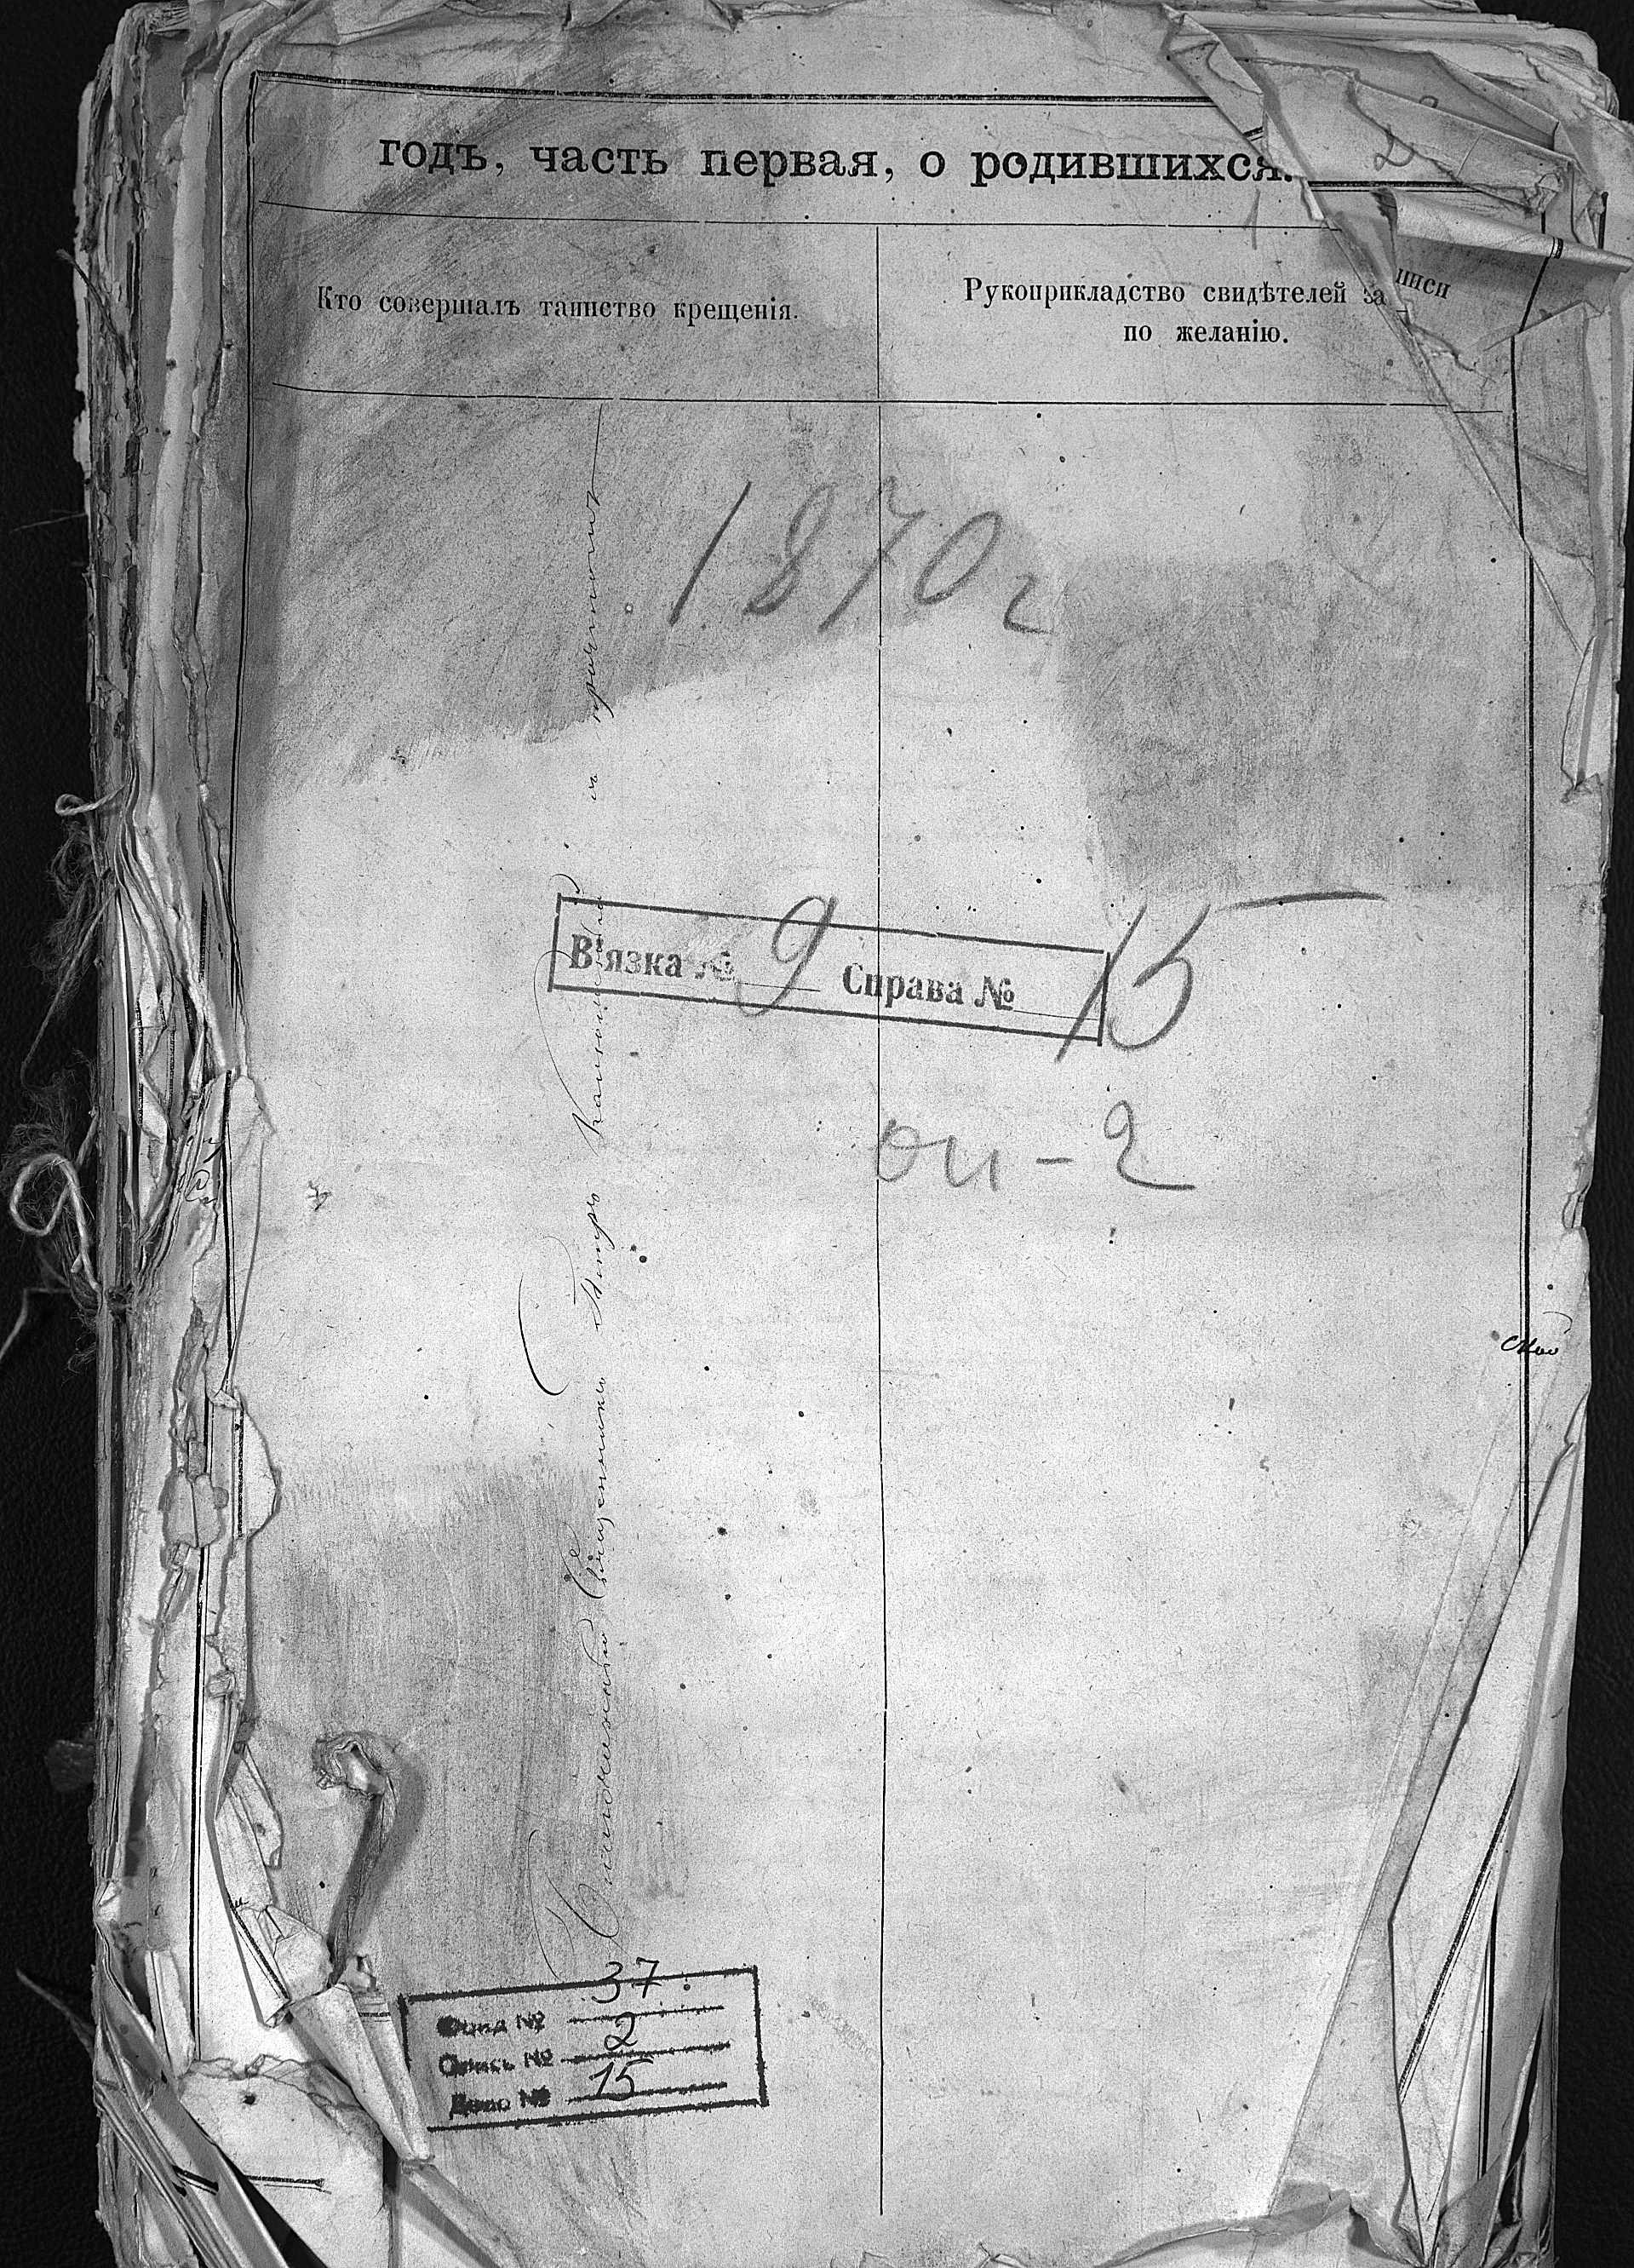 2
годъ, часть первая, о родившихся.
1
Кто совершалъ таинство крещенія.
Рукоприкладство свидѣтелей за писи
по желанію.
1870 г
В'язка № 9 Справа № 15
оп-2
Священникъ Петръ
Фонд № 37
Опись № 2
Дело № 15